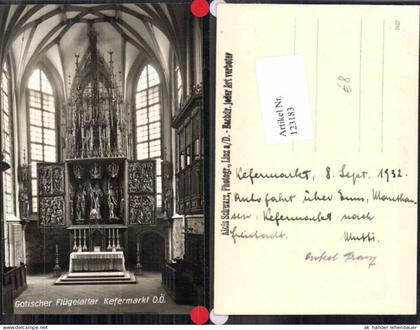 Gotischer Flügelaltar Kefermarkt O.Ö.
Alois Schwarz, Photogr., Linz a/D. - Nachdr. jeder Art verboten
Artikel Nr.
123183
€8
Kefermarkt, 8. Sept. 1932.
Autofahrt über Enns, Mauthau-
sen. Kefermarkt nach
Freistadt. Mutti.
Onkel Franz
© www.ansichtskarten-lehenbauer.at